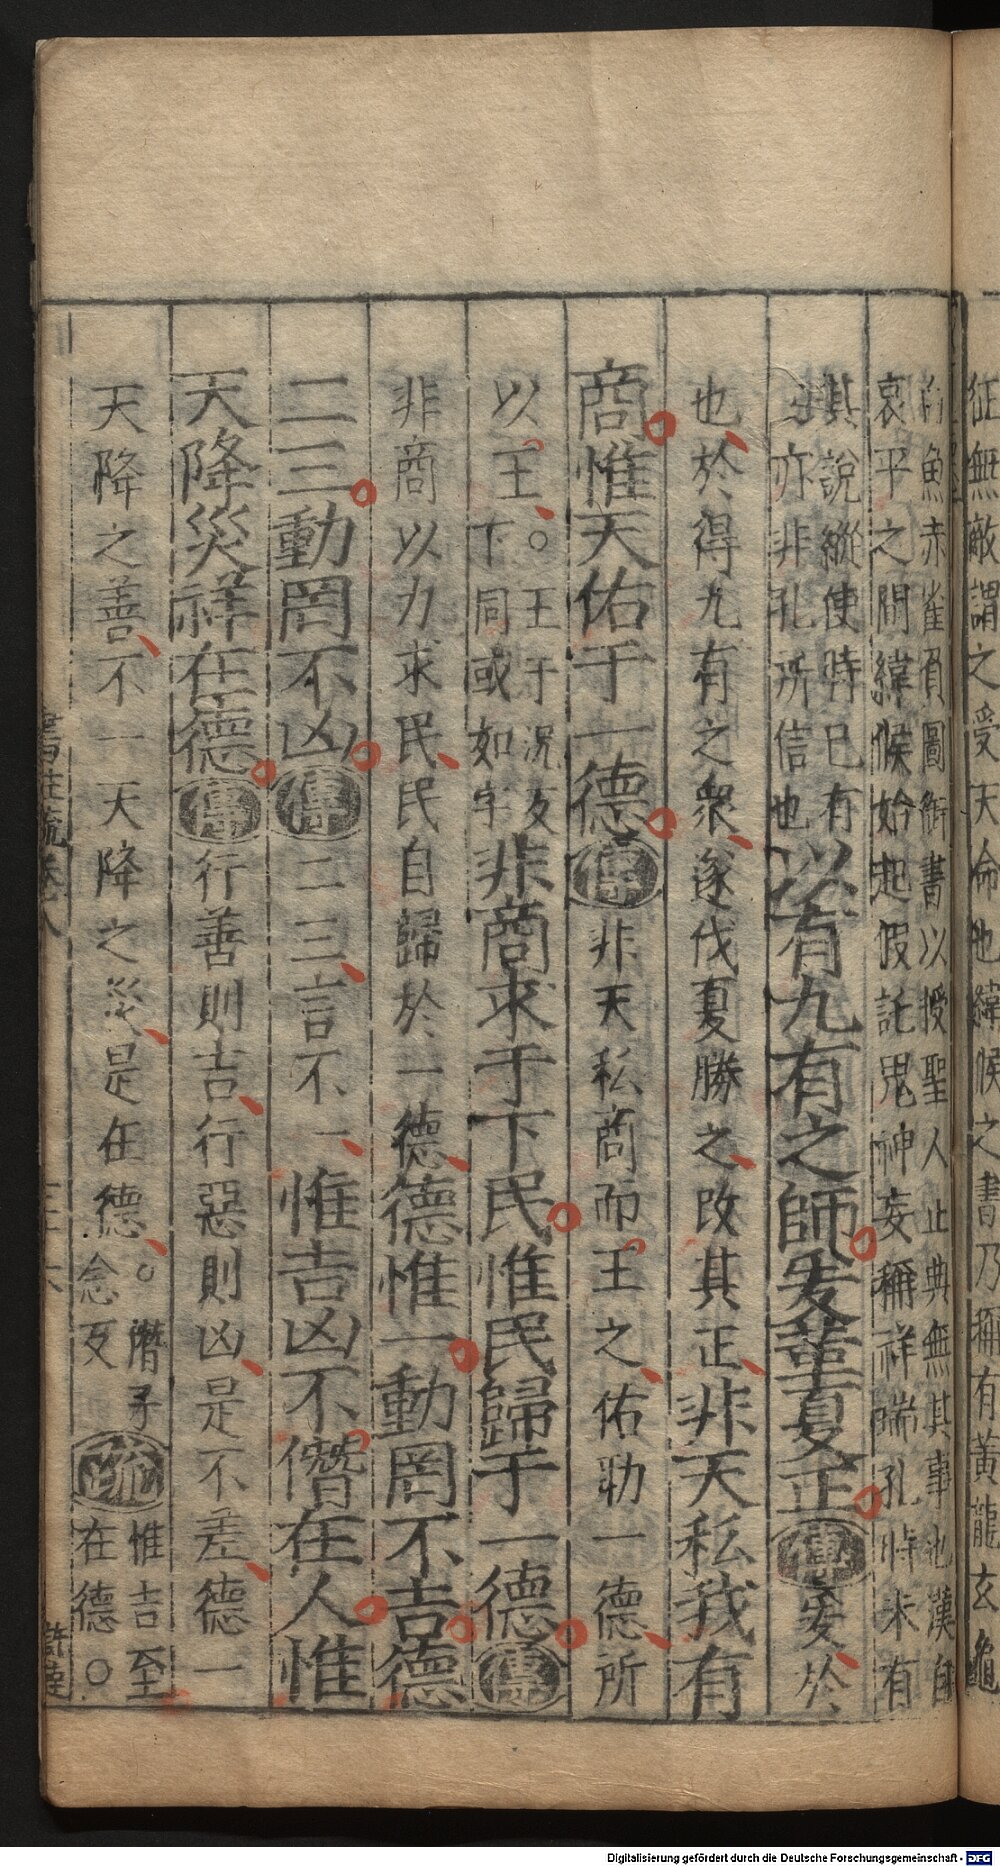 征無敵謂之受天命也緯候之書乃稱有黃龍玄龜
魚赤雀負圖銜書以授聖人止典無其事也漢自
哀平之間緯候始起假託鬼神妄稱祥瑞孔時未有
其說縱使時已有
亦非孔所信也
以有九有之師爰革夏正傳爰於
也於得九有之眾遂伐夏勝之改其正非天私我有
商惟天佑于一德傳非天私商而王之佑助一德所
以王○王于況反
下同或如字
非商求于下民惟民歸于一德傳
非商以力求民民自歸於一德德惟一動罔不吉德
二三動罔不凶傳二三言不一惟吉凶不僭在人惟
天降災祥在德傳行善則吉行惡則凶是不差德一
天降之善不一天降之災是在德○僭子
念反
疏惟吉至
在德○
書註疏卷八
Digitalisierung gefördert durch die Deutsche Forschungsgemeinschaft - DFG